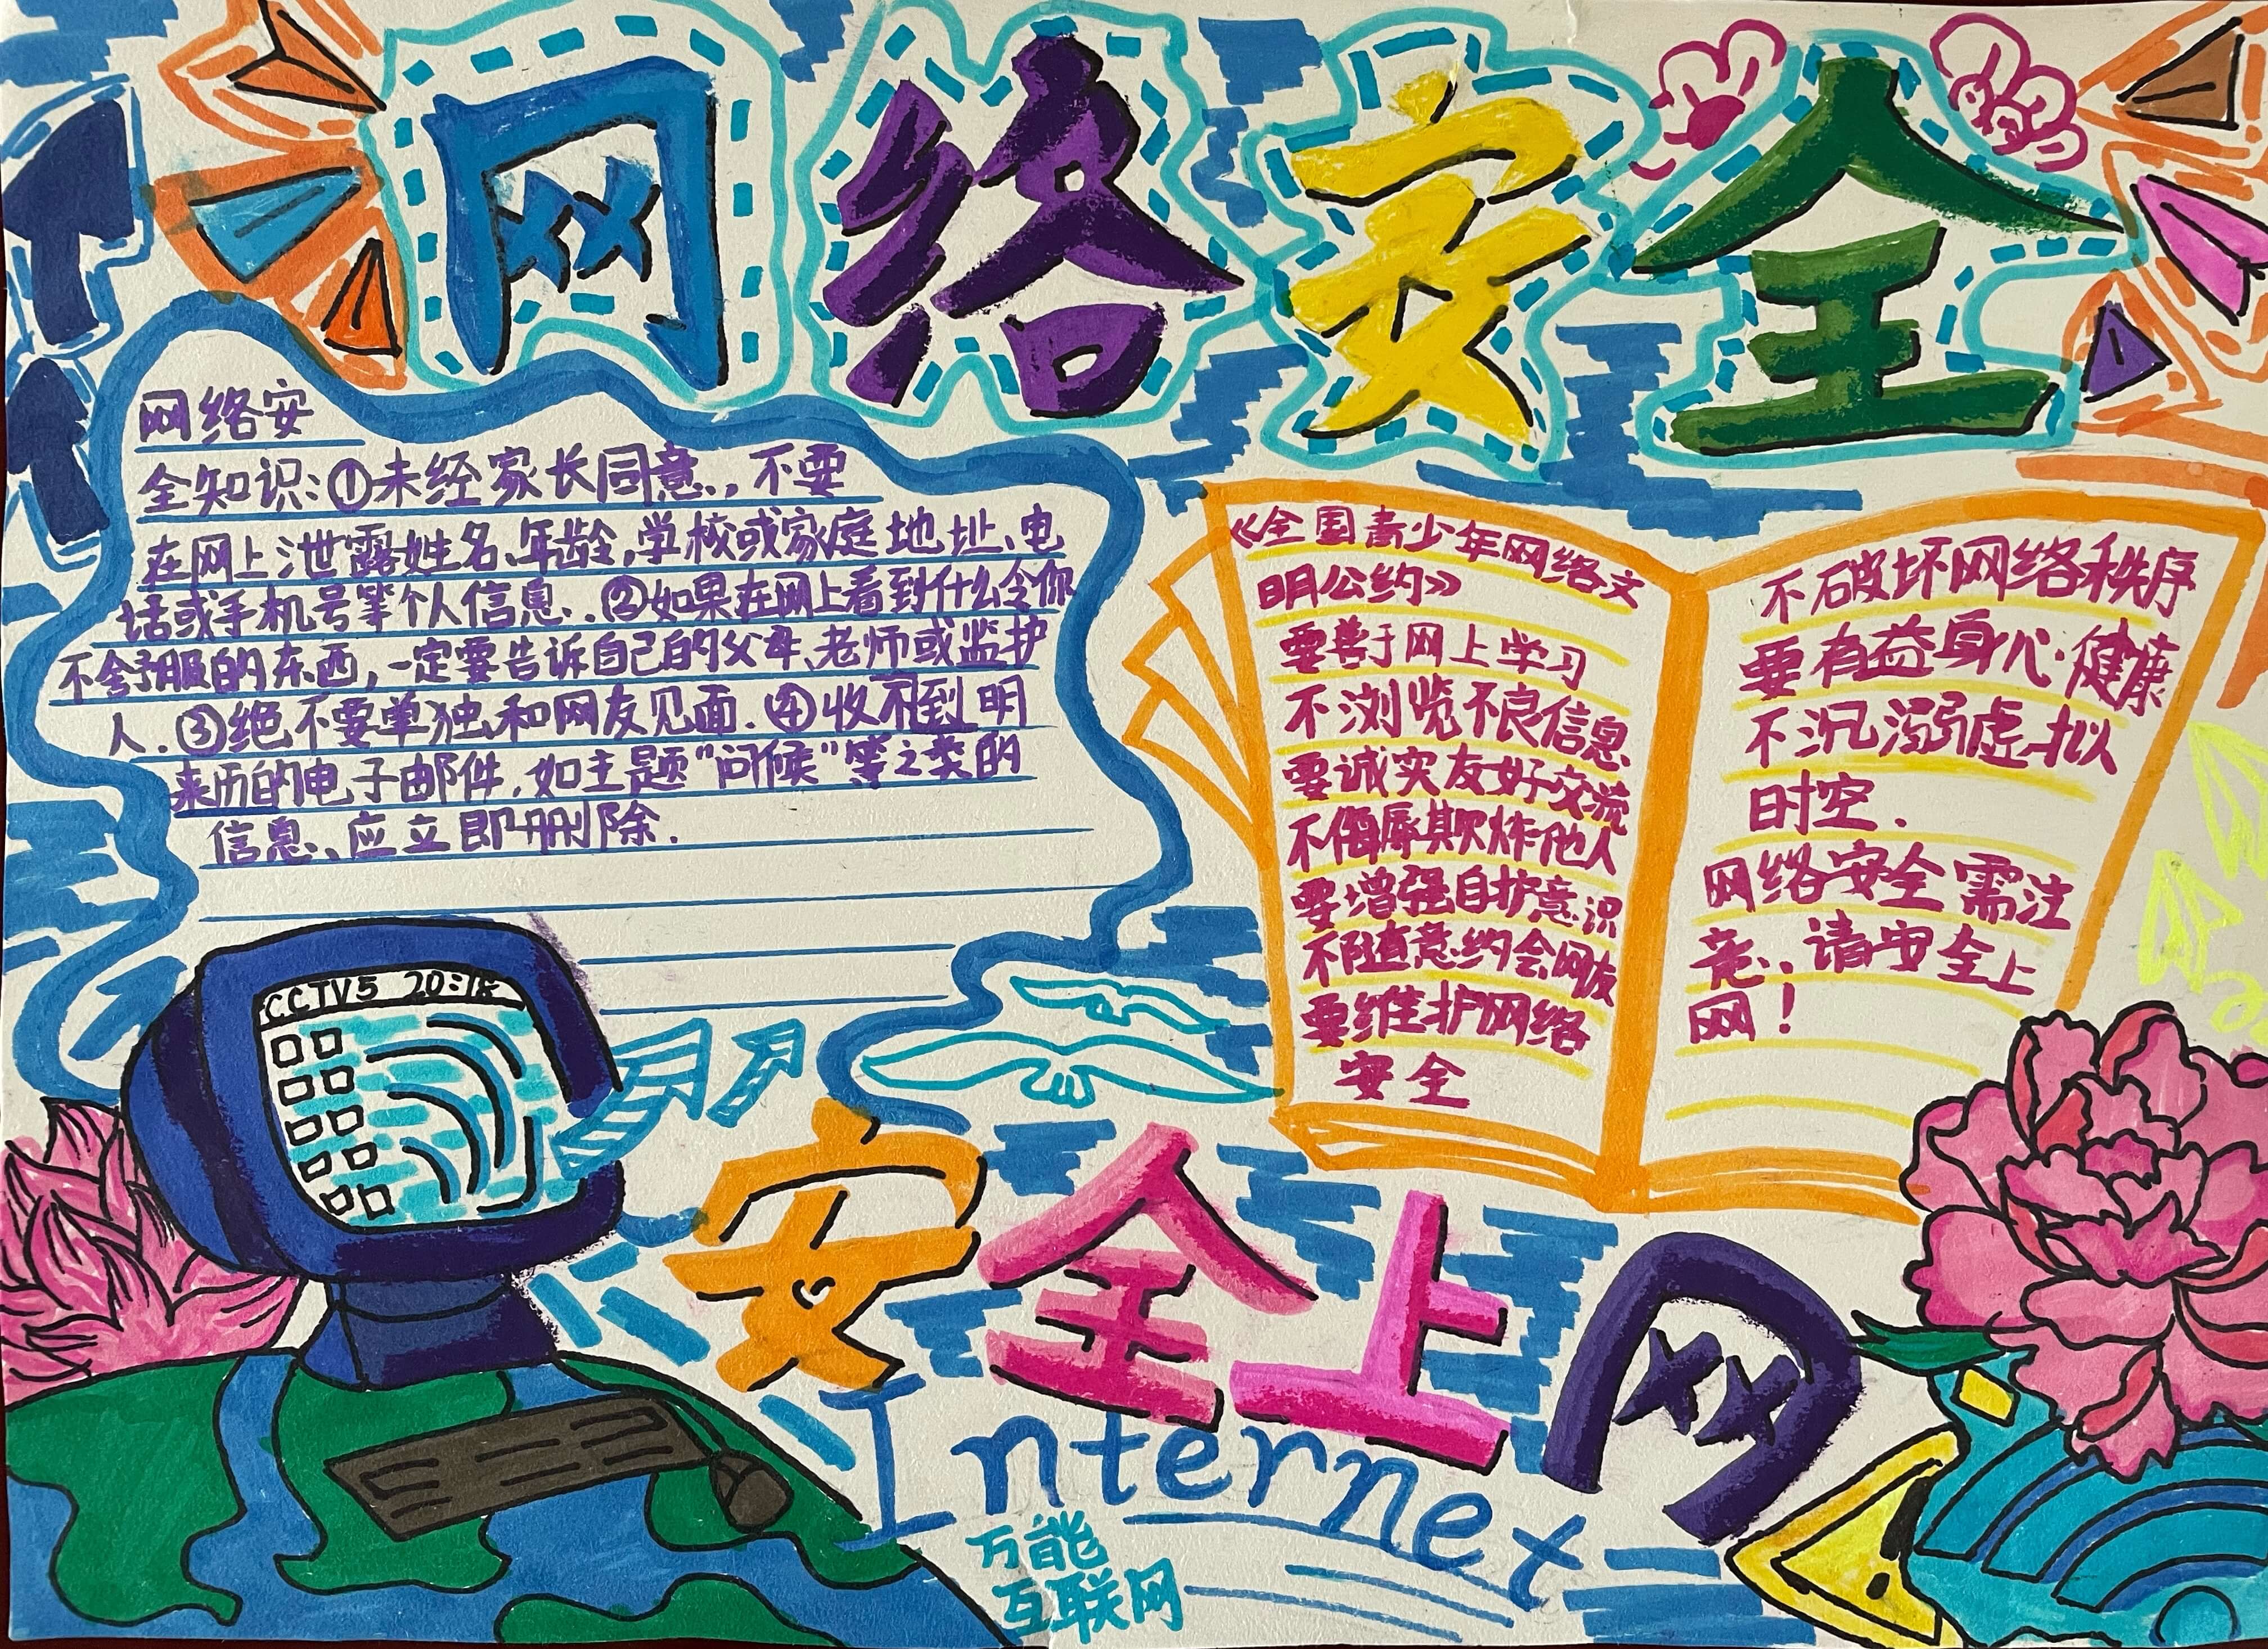 网络安全
网络安
全知识:①未经家长同意,不要
在网上泄露姓名、年龄,学校或家庭地址、电
话或手机号等个人信息.②如果在网上看到什么令你
不舒服的东西,一定要告诉自己的父母、老师或监护
人.③绝不要单独和网友见面.④收不到明
来历的电子邮件,如主题"问候"等之类的
信息、应立即删除.
《全国青少年网络文
明公约》
要善于网上学习
不浏览不良信息
要诚实友好交流
不侮辱欺炸他人
要增强自护意识
不随意约会网友
要维护网络
安全
不破坏网络秩序
要有益身心健康
不沉溺虚拟
时空.
网络安全需注
意,请安全上
网!
CCTV5 20:18
安全上网
Internet
万能
互联网